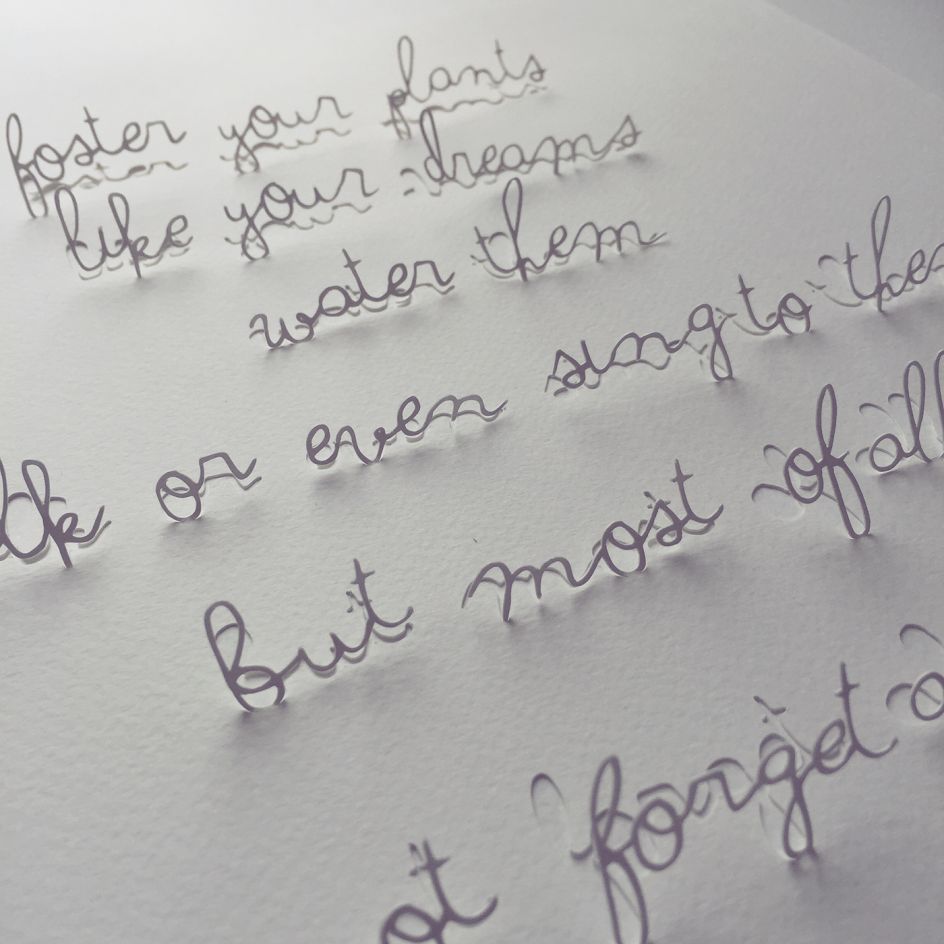 foster your plants
like your dreams
water them
lk or even sing to the
But most of all
ot forget a